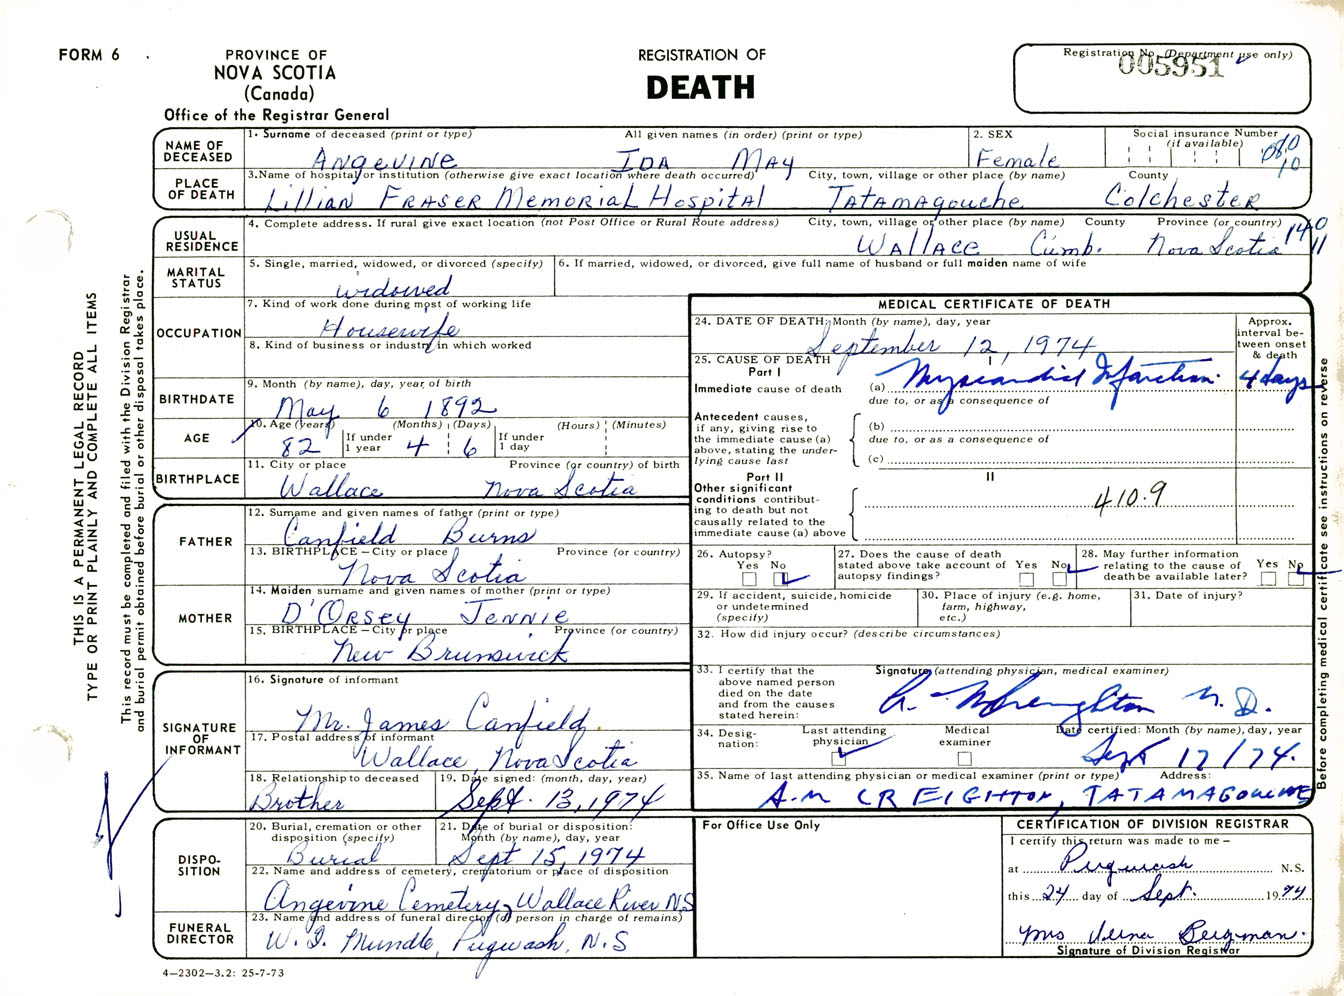 FORM 6
PROVINCE OF
NOVA SCOTIA
(Canada)
Office of the Registrar General
REGISTRATION OF
DEATH
Registration No. (Department use only)
005951
THIS IS A PERMANENT LEGAL RECORD
TYPE OR PRINT PLAINLY AND COMPLETE ALL ITEMS
This record must be completed and filed with the Division Registrar
and burial permit obtained before burial or other disposal takes place.
NAME OF DECEASED
1. Surname of deceased (print or type) All given names (in order) (print or type)
Angevine Ida May
2. SEX
Female
Social insurance Number
(if available)
10
PLACE OF DEATH
3. Name of hospital or institution (otherwise give exact location where death occurred) City, town, village or other place (by name) County
Lillian Fraser Memorial Hospital Tatamagouche Colchester
USUAL RESIDENCE
4. Complete address. If rural give exact location (not Post Office or Rural Route address) City, town, village or other place (by name) County Province (or country)
Wallace Cumb. Nova Scotia
140
11
MARITAL STATUS
5. Single, married, widowed, or divorced (specify)
widowed
6. If married, widowed, or divorced, give full name of husband or full maiden name of wife
OCCUPATION
7. Kind of work done during most of working life
Housewife
8. Kind of business or industry in which worked
BIRTHDATE
9. Month (by name), day, year of birth
May 6 1892
AGE
10. Age (years) (Months) (Days) (Hours) (Minutes)
82 If under 1 year 4 6 If under 1 day
BIRTHPLACE
11. City or place Province (or country) of birth
Wallace Nova Scotia
FATHER
12. Surname and given names of father (print or type)
Canfield Burns
13. BIRTHPLACE – City or place Province (or country)
Nova Scotia
MOTHER
14. Maiden surname and given names of mother (print or type)
D'Orsey Jennie
15. BIRTHPLACE – City or place Province (or country)
New Brunswick
SIGNATURE OF INFORMANT
16. Signature of informant
Mr. James Canfield.
17. Postal address of informant
Wallace, Nova Scotia
18. Relationship to deceased
Brother
19. Date signed: (month, day, year)
Sept. 13, 1974
DISPO-
SITION
20. Burial, cremation or other disposition (specify)
Burial
21. Date of burial or disposition: Month (by name), day, year
Sept 15, 1974
22. Name and address of cemetery, crematorium or place of disposition
Angevine Cemetery, Wallace River N.S
FUNERAL DIRECTOR
23. Name and address of funeral director (or person in charge of remains)
Mundle, Pugwash, N.S
4–2302–3.2: 25-7-73
MEDICAL CERTIFICATE OF DEATH
24. DATE OF DEATH: Month (by name), day, year
September 12, 1974
Approx. interval be-
tween onset & death
25. CAUSE OF DEATH
Part I
I
Immediate cause of death
(a) Myocardial Infarction. 4 days
due to, or as a consequence of
Antecedent causes, if any, giving rise to the immediate cause (a) above, stating the under-
lying cause last
(b)
due to, or as a consequence of
(c)
Part II
II
Other significant conditions contribut-
ing to death but not causally related to the immediate cause (a) above
410.9
26. Autopsy?
Yes No
27. Does the cause of death stated above take account of autopsy findings?
Yes No
28. May further information relating to the cause of death be available later?
Yes No
29. If accident, suicide, homicide or undetermined (specify)
30. Place of injury (e.g. home, farm, highway, etc.)
31. Date of injury?
32. How did injury occur? (describe circumstances)
33. I certify that the above named person died on the date and from the causes stated herein:
Signature (attending physician, medical examiner)
Creighton M.D.
34. Desig-
nation:
Last attending physician
Medical examiner
Date certified: Month (by name), day, year
Sept 17/74.
35. Name of last attending physician or medical examiner (print or type) Address:
A.M CREIGHTON, TATAMAGOUCHE
For Office Use Only
CERTIFICATION OF DIVISION REGISTRAR
I certify this return was made to me –
at Pugwash N.S.
this 24 day of Sept. 1974
Mrs Verna Bergman.
Signature of Division Registrar
Before completing medical certificate see instructions on reverse